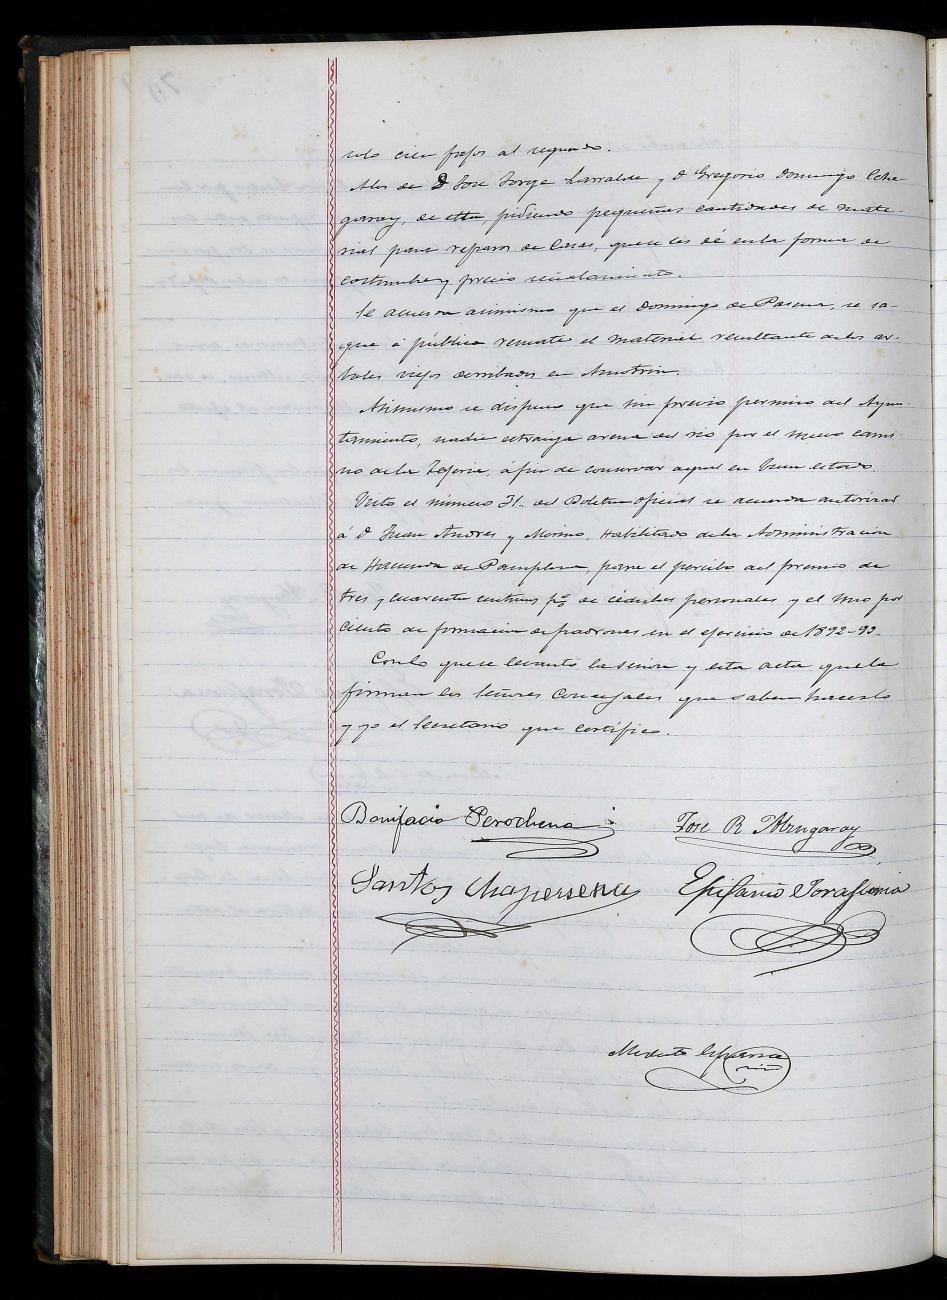 solo cien fajos al segundo.
A los de D José Jorge Larralde y D Gregorio Domingo Eche-
garay, de esta, pidiendo pequeñas cantidades de mate-
rial para reparos de casas, que se les dé en la forma de
costumbre y previo señalamiento.
Se acuerda asimismo que el Domingo de Pascua, se sa-
que á pública remate el material resultante de los ar-
boles viejos derribados en
Asimismo se dispuso que sin previo permiso del Ayun-
tamiento, nadie estraiga arena del rio por el nuevo cami-
no de la Tejeria, á fin de conservar aquel en buen estado.
Visto el número 31. del Boletin oficial se acuerda autorizar
á D Juan Andres y Merino, Habilitado de la Administracion
de Hacienda de Pamplona, para el percibo del premio de
tres y cuarenta centimos p% de cédulas personales y el uno por
ciento de formacion de padrones en el ejercicio de 1892-93.
Con lo que se levantó la sesion y esta acta que la
firman los Señores Concejales que saben hacerlo
y yo el Secretario que certifico.
Bonifacio Perochena José R Abrugaray
Santos Esifanio
Modesto Esparza